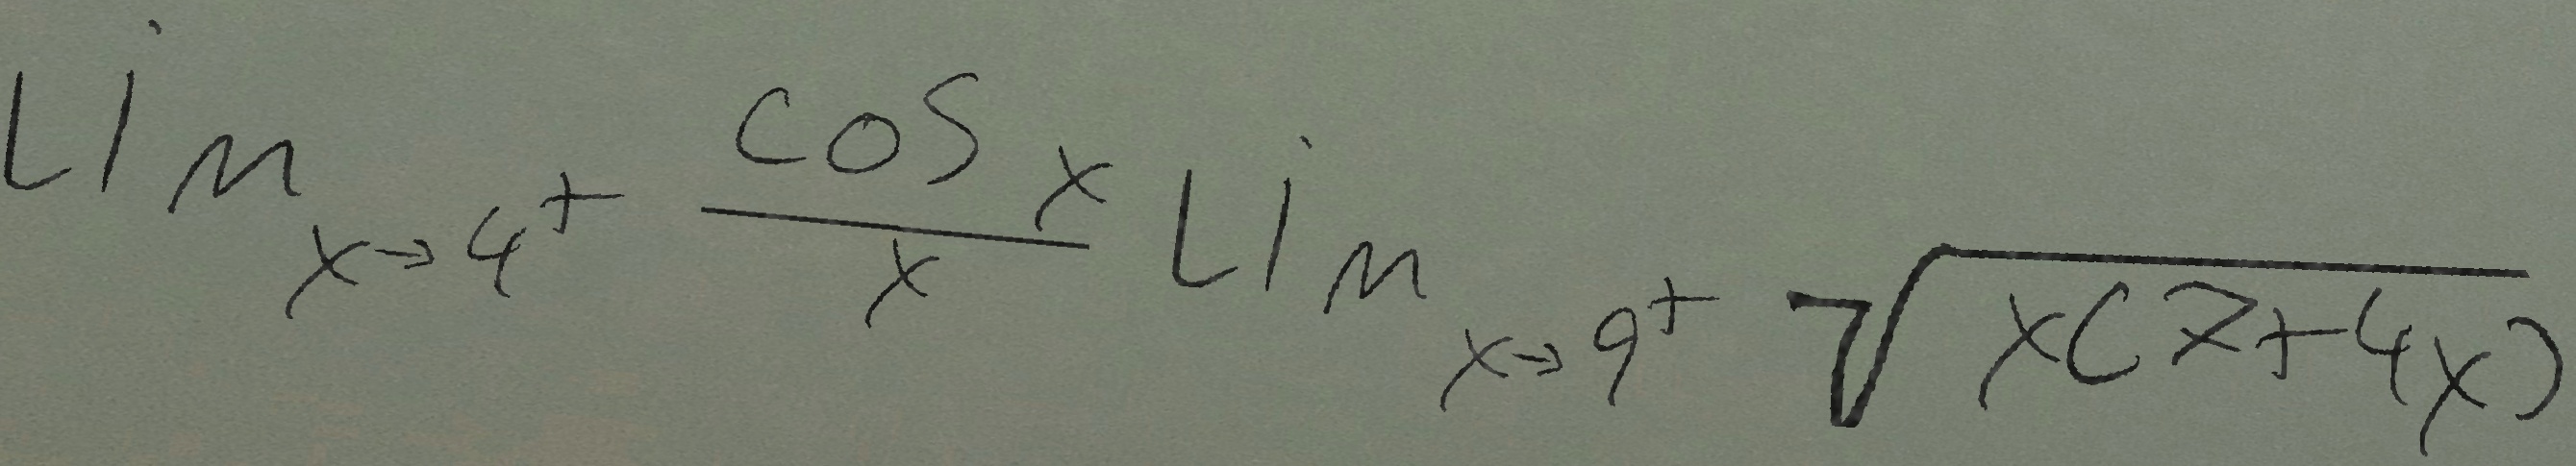 \lim_{x \to 4^+} \frac{\cos x}{x} \lim_{x \to 9^+} \sqrt{x(7+4x)}